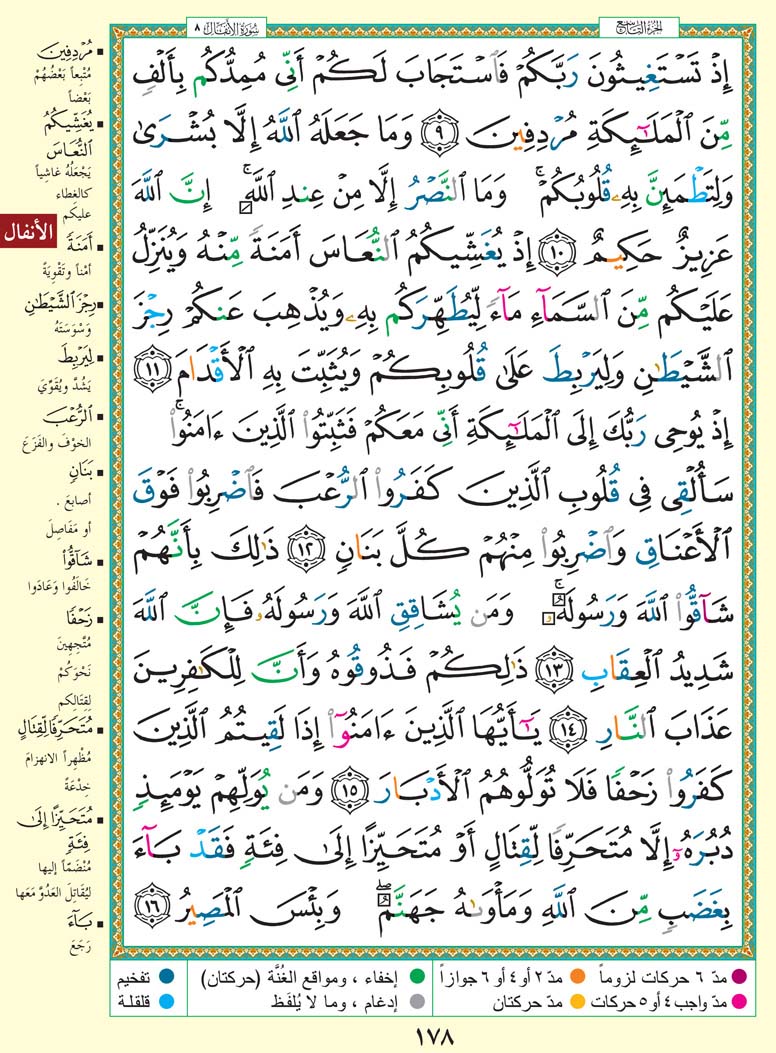 الجزء التاسع
سورة الأنفال ٨
إِذْ تَسْتَغِيثُونَ رَبَّكُمْ فَٱسْتَجَابَ لَكُمْ أَنِّى مُمِدُّكُم بِأَلْفٍ
مِّنَ ٱلْمَلَـٰٓئِكَةِ مُرْدِفِينَ ٩ وَمَا جَعَلَهُ ٱللَّهُ إِلَّا بُشْرَىٰ
وَلِتَطْمَئِنَّ بِهِۦ قُلُوبُكُمْ ۚ وَمَا ٱلنَّصْرُ إِلَّا مِنْ عِندِ ٱللَّهِ ۚ إِنَّ ٱللَّهَ
عَزِيزٌ حَكِيمٌ ١٠ إِذْ يُغَشِّيكُمُ ٱلنُّعَاسَ أَمَنَةً مِّنْهُ وَيُنَزِّلُ
عَلَيْكُم مِّنَ ٱلسَّمَآءِ مَآءً لِّيُطَهِّرَكُم بِهِۦ وَيُذْهِبَ عَنكُمْ رِجْزَ
ٱلشَّيْطَـٰنِ وَلِيَرْبِطَ عَلَىٰ قُلُوبِكُمْ وَيُثَبِّتَ بِهِ ٱلْأَقْدَامَ ١١
إِذْ يُوحِى رَبُّكَ إِلَى ٱلْمَلَـٰٓئِكَةِ أَنِّى مَعَكُمْ فَثَبِّتُوا۟ ٱلَّذِينَ ءَامَنُوا۟ ۚ
سَأُلْقِى فِى قُلُوبِ ٱلَّذِينَ كَفَرُوا۟ ٱلرُّعْبَ فَٱضْرِبُوا۟ فَوْقَ
ٱلْأَعْنَاقِ وَٱضْرِبُوا۟ مِنْهُمْ كُلَّ بَنَانٍ ١٢ ذَٰلِكَ بِأَنَّهُمْ
شَآقُّوا۟ ٱللَّهَ وَرَسُولَهُۥ ۚ وَمَن يُشَاقِقِ ٱللَّهَ وَرَسُولَهُۥ فَإِنَّ ٱللَّهَ
شَدِيدُ ٱلْعِقَابِ ١٣ ذَٰلِكُمْ فَذُوقُوهُ وَأَنَّ لِلْكَـٰفِرِينَ
عَذَابَ ٱلنَّارِ ١٤ يَـٰٓأَيُّهَا ٱلَّذِينَ ءَامَنُوٓا۟ إِذَا لَقِيتُمُ ٱلَّذِينَ
كَفَرُوا۟ زَحْفًا فَلَا تُوَلُّوهُمُ ٱلْأَدْبَارَ ١٥ وَمَن يُوَلِّهِمْ يَوْمَئِذٍ
دُبُرَهُۥٓ إِلَّا مُتَحَرِّفًا لِّقِتَالٍ أَوْ مُتَحَيِّزًا إِلَىٰ فِئَةٍ فَقَدْ بَآءَ
بِغَضَبٍ مِّنَ ٱللَّهِ وَمَأْوَىٰهُ جَهَنَّمُ ۖ وَبِئْسَ ٱلْمَصِيرُ ١٦
▪ مُرْدِفِينَ
مُتْبِعاً بَعْضُهُمْ
بَعْضاً
▪ يُغَشِّيكُمُ
ٱلنُّعَاسَ
يَجْعَلُهُ غاشِياً
كالغِطاء
عليكم
الأنفال
▪ أَمَنَةً
أمْناً وتَقْوِيَةً
▪ رِجْزَ ٱلشَّيْطَـٰنِ
وَسْوَسَتَهُ
▪ لِيَرْبِطَ
يَشُدَّ ويُقَوِّيَ
▪ ٱلرُّعْبَ
الخوْفَ والفَزَعَ
▪ بَنَانٍ
أصابعَ .
أو مَفَاصِلَ
▪ شَآقُّوا۟
خَالَفُوا وَعَادَوا
▪ زَحْفًا
مُتَّجِهِينَ
نَحْوَكُمْ
لِقِتَالِكم
▪ مُتَحَرِّفًا لِّقِتَالٍ
مُظْهِراً الانهزامَ
خِدْعَةً
▪ مُتَحَيِّزًا إِلَىٰ
فِئَةٍ
مُنْضَمّاً إليها
ليُقَاتِلَ العَدُوَّ مَعَها
▪ بَآءَ
رَجَعَ
مدّ ٦ حركات لزوماً ● مدّ ٢ أو ٤ أو ٦ جوازاً ● إخفاء ، ومواقع الغُنَّة (حركتان) ● تفخيم
مدّ واجب ٤ أو ٥ حركات ● مدّ حركتان ● إدغام ، وما لا يُلفَظ ● قلقلة
١٧٨